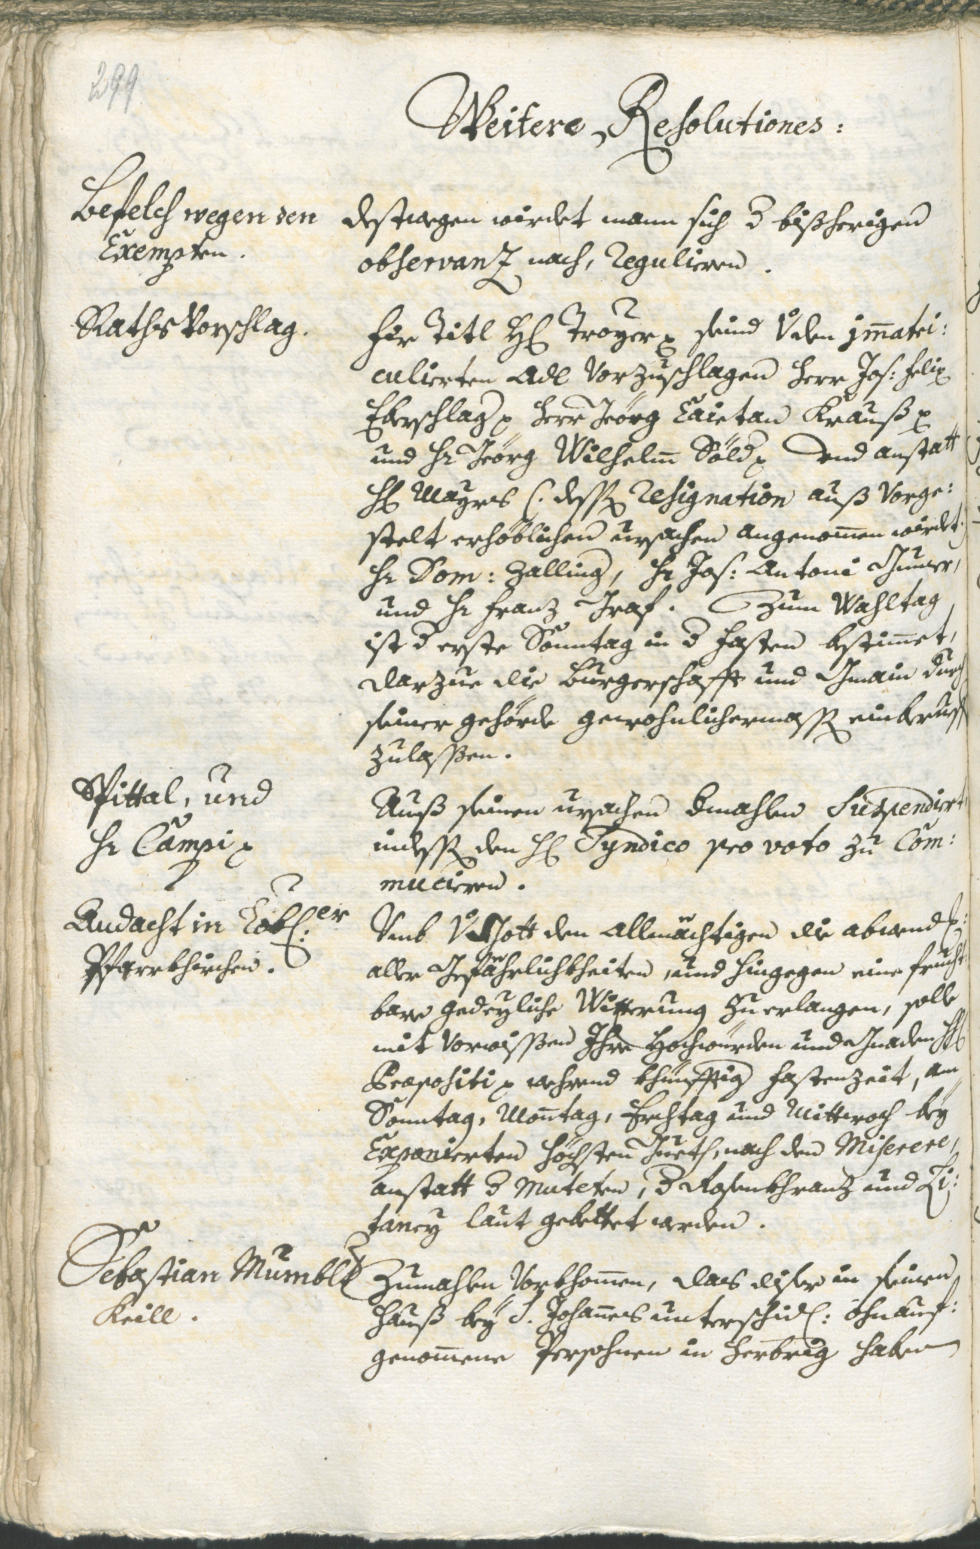 299
Weitere Resolutiones:
Befelch wegen den
Exempten.
destwegen wirdet mann sich d bißherigen
observanz nach, Regulieren.
Raths Vorschlag.
für Titl H Troyer seind V den jm̄atri:
culierten Adl Vorzuschlagen Herr Jos: Felix
Eberschlag Herr Jeörg Caietan Krauß
und Hr Jeörg Wilhelm Söld und anstatt
H Mayrs (: dessen Resignation auß Vorge:
stelt erhöblichen ursachen angenom̄en wirdet:
Hr Dom: Zalling, Hr Jos: Antoni
und Hr Franz Graf. Zum Wahltag
ist d erste Sonntag in d fasten bestim̄et,
darzue die Burgerschafft und Gmain durch
seiner gehörde gewohnlichermassen einberuffen
zulassen.
Spittal, und
Hr Campi
Auß seinen ursachen dmahlen Suspendiert
indessen den H Syndico pro voto zu Com̄:
mucieren.
Andacht in Löbl: er
Pfarrkhirchen.
Umb V Gott den Allmächtigen die abwend:
aller Gefährlichkheiten, und hingegen eine frucht
bare gedeyliche Witterung zu erlangen, solle
mit Vorwissen Ihro Hochwürden und Gnaden H
Praepositi wehrend khünfftig fastenzeit, am
Sonntag, Montag, Erchtag und Mittwoch bey
Exponierten höchsten Gueth, nach den Miserere,
anstatt d Muteten, d Rosenkhranz und Li:
taney laut gebettet werden.
Sebastian Mumbl
Keill.
Zumahlen Vorkhom̄en, das diser in seinen
Hauß bey S. Johannes unterschidl: ohnauf:
genom̄ene Persohnen in Herbrig haben